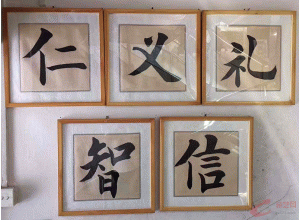 仁义礼
智信